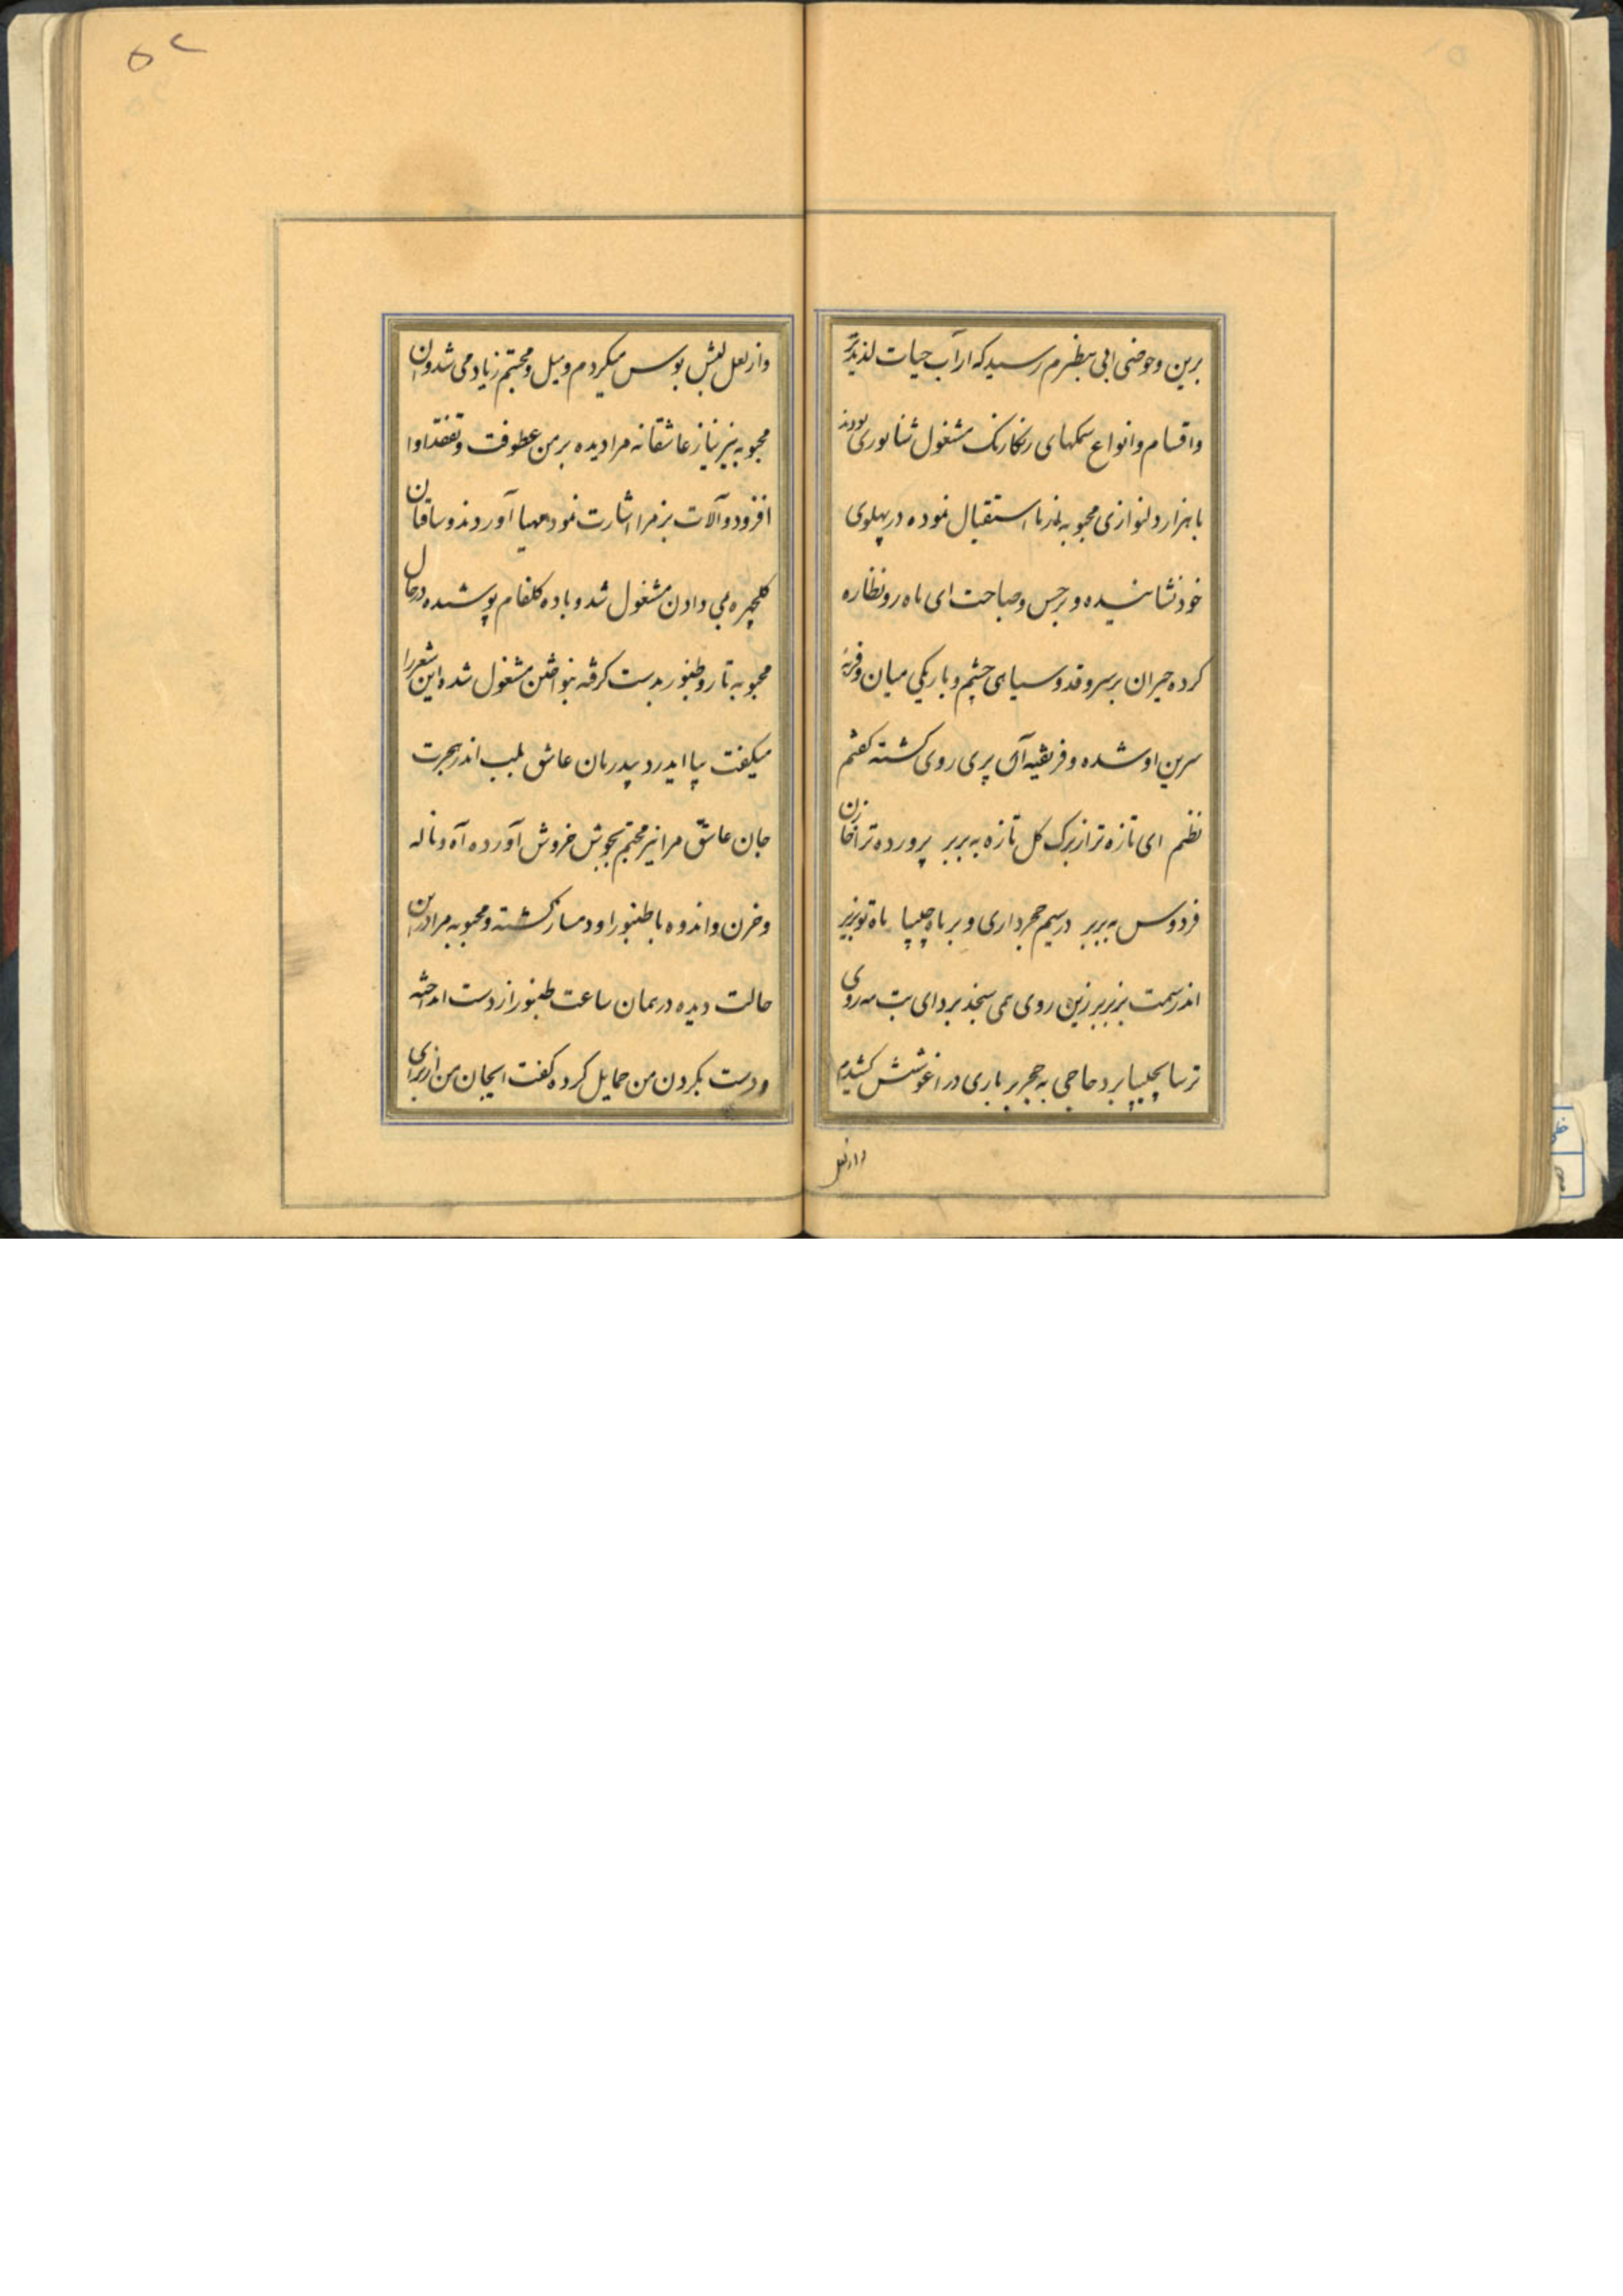 برین و حوضی ابی بنظرم رسید که از آب حیات لذیذتر
و اقسام و انواع سمکهای رنکارنک مشغول شناوری بودند
با هزار دلنوازی محبوبه نازنما استقبال نموده در پهلوی
خود نشانیده و بر حسن و صباحت ای ماه رو نظاره
کرده حیران بر سرو قد و سیاهی چشم و باریکی میان و فربه
سرین او شده و فریفته آن پری روی کشته کفتم
نظم ای تازه تر از برک کل تازه به بربر پرورده ترا خازن
فردوس به بربر در سیم حجر داری و بر ماه چلیپا
اندر سمت بربر زین روی می سجد برد ای بت مه روی
ترسا بچلیپا بر و حاجی به حجر بر باری در اغوشش کشیدم
و از لعل
و از لعل لبش بوس میکردم و میل و محبتم زیاد می شد و ان
محبوبه نیز نیاز عاشقانه مرا دیده بر من عطوفت و تفقد او را
افزود و آلات بزم را اشارت نمود مهیا آوردند و ساقیان
کلچهره می دادن مشغول شد و باده کلفام پوشیده در حال
محبوبه تار و طنبور بدست کرفته بنواختن مشغول شده این شعر را
میکفت بیا ایدرد بیدرمان عاشق بلب اندر هجرت
جان عاشق مرا نیز محبتم بجوش خروش آورده آه و ناله
و حزن و اندوه با طنبور او دمساز کشته و محبوبه مرا در این
حالت دیده در همان ساعت طنبور از دست انداخته
و دست بکردن من حمایل کرده کفت ایجان من از برای
۵۲